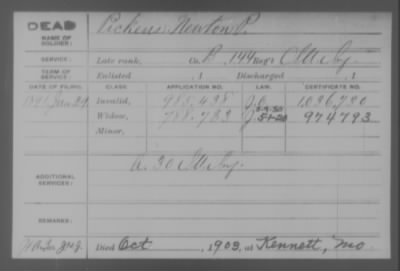 DEAD
NAME OF SOLDIER:
Pickens Newton P.
SERVICE:
Late rank, Co. B, 144 Reg't Ills Inf.
TERM OF SERVICE:
Enlisted , 1 Discharged , 1
DATE OF FILING. CLASS. APPLICATION NO. LAW. CERTIFICATE NO.
Invalid, 785,438 1,096,720
Widow, 788,783 5-1-20 974793
Minor,
ADDITIONAL SERVICES:
A. 30 Ills Inf.
REMARKS:
Died Oct , 1903, at Kennett, Mo.